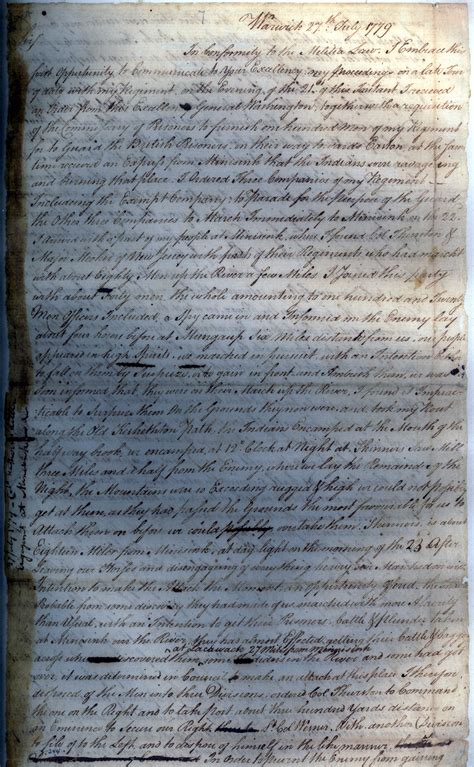 Warwick 27th July 1779
Sir/
In Conformity to the Militia Law, I Embrace this
first Opportunity to Communicate to Your Excellency my proceedings on a late Tour
of duty with my Regiment, on the Evening of the 21st of this Instant I received
an Order from His Excellency General Washington, together with a requisition
of the Commissary of Prisoners to furnish one hundred Men of my Regiment
to Guard the British Prisoners on their way towards Easton, at the same
time received an Express from Minisink that the Indians were ravageing
and burning that place. I Ordered Three Companies of my Regiment
Including the Exempt Company to Parade for the purpose of the Guard
the Other three Companies to March Immediately to Minisink on the 22
I arived with a part of my people at Minisink, where I found Col Thurston &
Major Meeker of New Jersey with part of their Regiments who had marched
with about Eighty Men up the River a few Miles. I Joined this party
with about Forty men the whole amounting to one hundred and Twenty
Men Officers Included, a Spy came in and Informed us the Enemy lay
about four hours before at Mungaup Six Miles distant from us, our people
appeared in high Spirits, we marched in pursuit with an Intention
to fall on them by Surprize, or to gain in front and Ambush them, we was
soon informed that they were on their March up the River, I found it Impractable
to Surprize them On the Grounds they now were, and took my Rout
along the Old Keshethton path, the Indians Encamped at the Mouth of the
halfway brook, we encamped, at 12 Clock at Night at Skinners Saw Mill
three Miles and a half from the Enemy, where we lay the Remainder of the
Night, the Mountains was so Exceeding rugid & high we could not possibly
get at them, as they had passed the Grounds the most favourable for us to
Attack them on before we could overtake them, Skinners is about
Eighteen Miles from Minisink, at day light on the morning of the 23d After
leaving our Horses and disengaging of every thing heavy we Marched on with
Intention to make the Attack the Moment an Opportunity offered, the
Probable from some discovery they had made of us marched with more Alacrity
than Usual, with an Intention to get their Prisoners Cattle & Plunder taken
at Minisink over the River, they had almost Effected getting their Cattle & Baggage
across when we discovered them at Lackawack 27 Miles from Minnisink some in the River and some had got
over, it was determined in Council to make an attack at this place I therefore
disposed of the Men into three Divisions, ordered Col Thurston to Command
the one on the Right and to take post about three hundred Yards distance on
an Eminence to Secure our Right, Lt Col Wisner With another Division
to file of to the Left, and to dispose of himself in the like manner,
In Order to prevent the Enemy from gaining